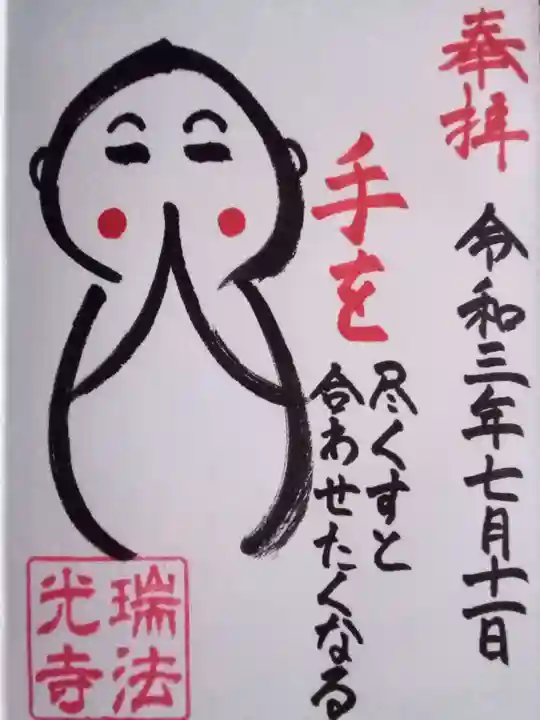 奉拝
令和三年七月十一日
手を
尽くすと
合わせたくなる
瑞法
光寺